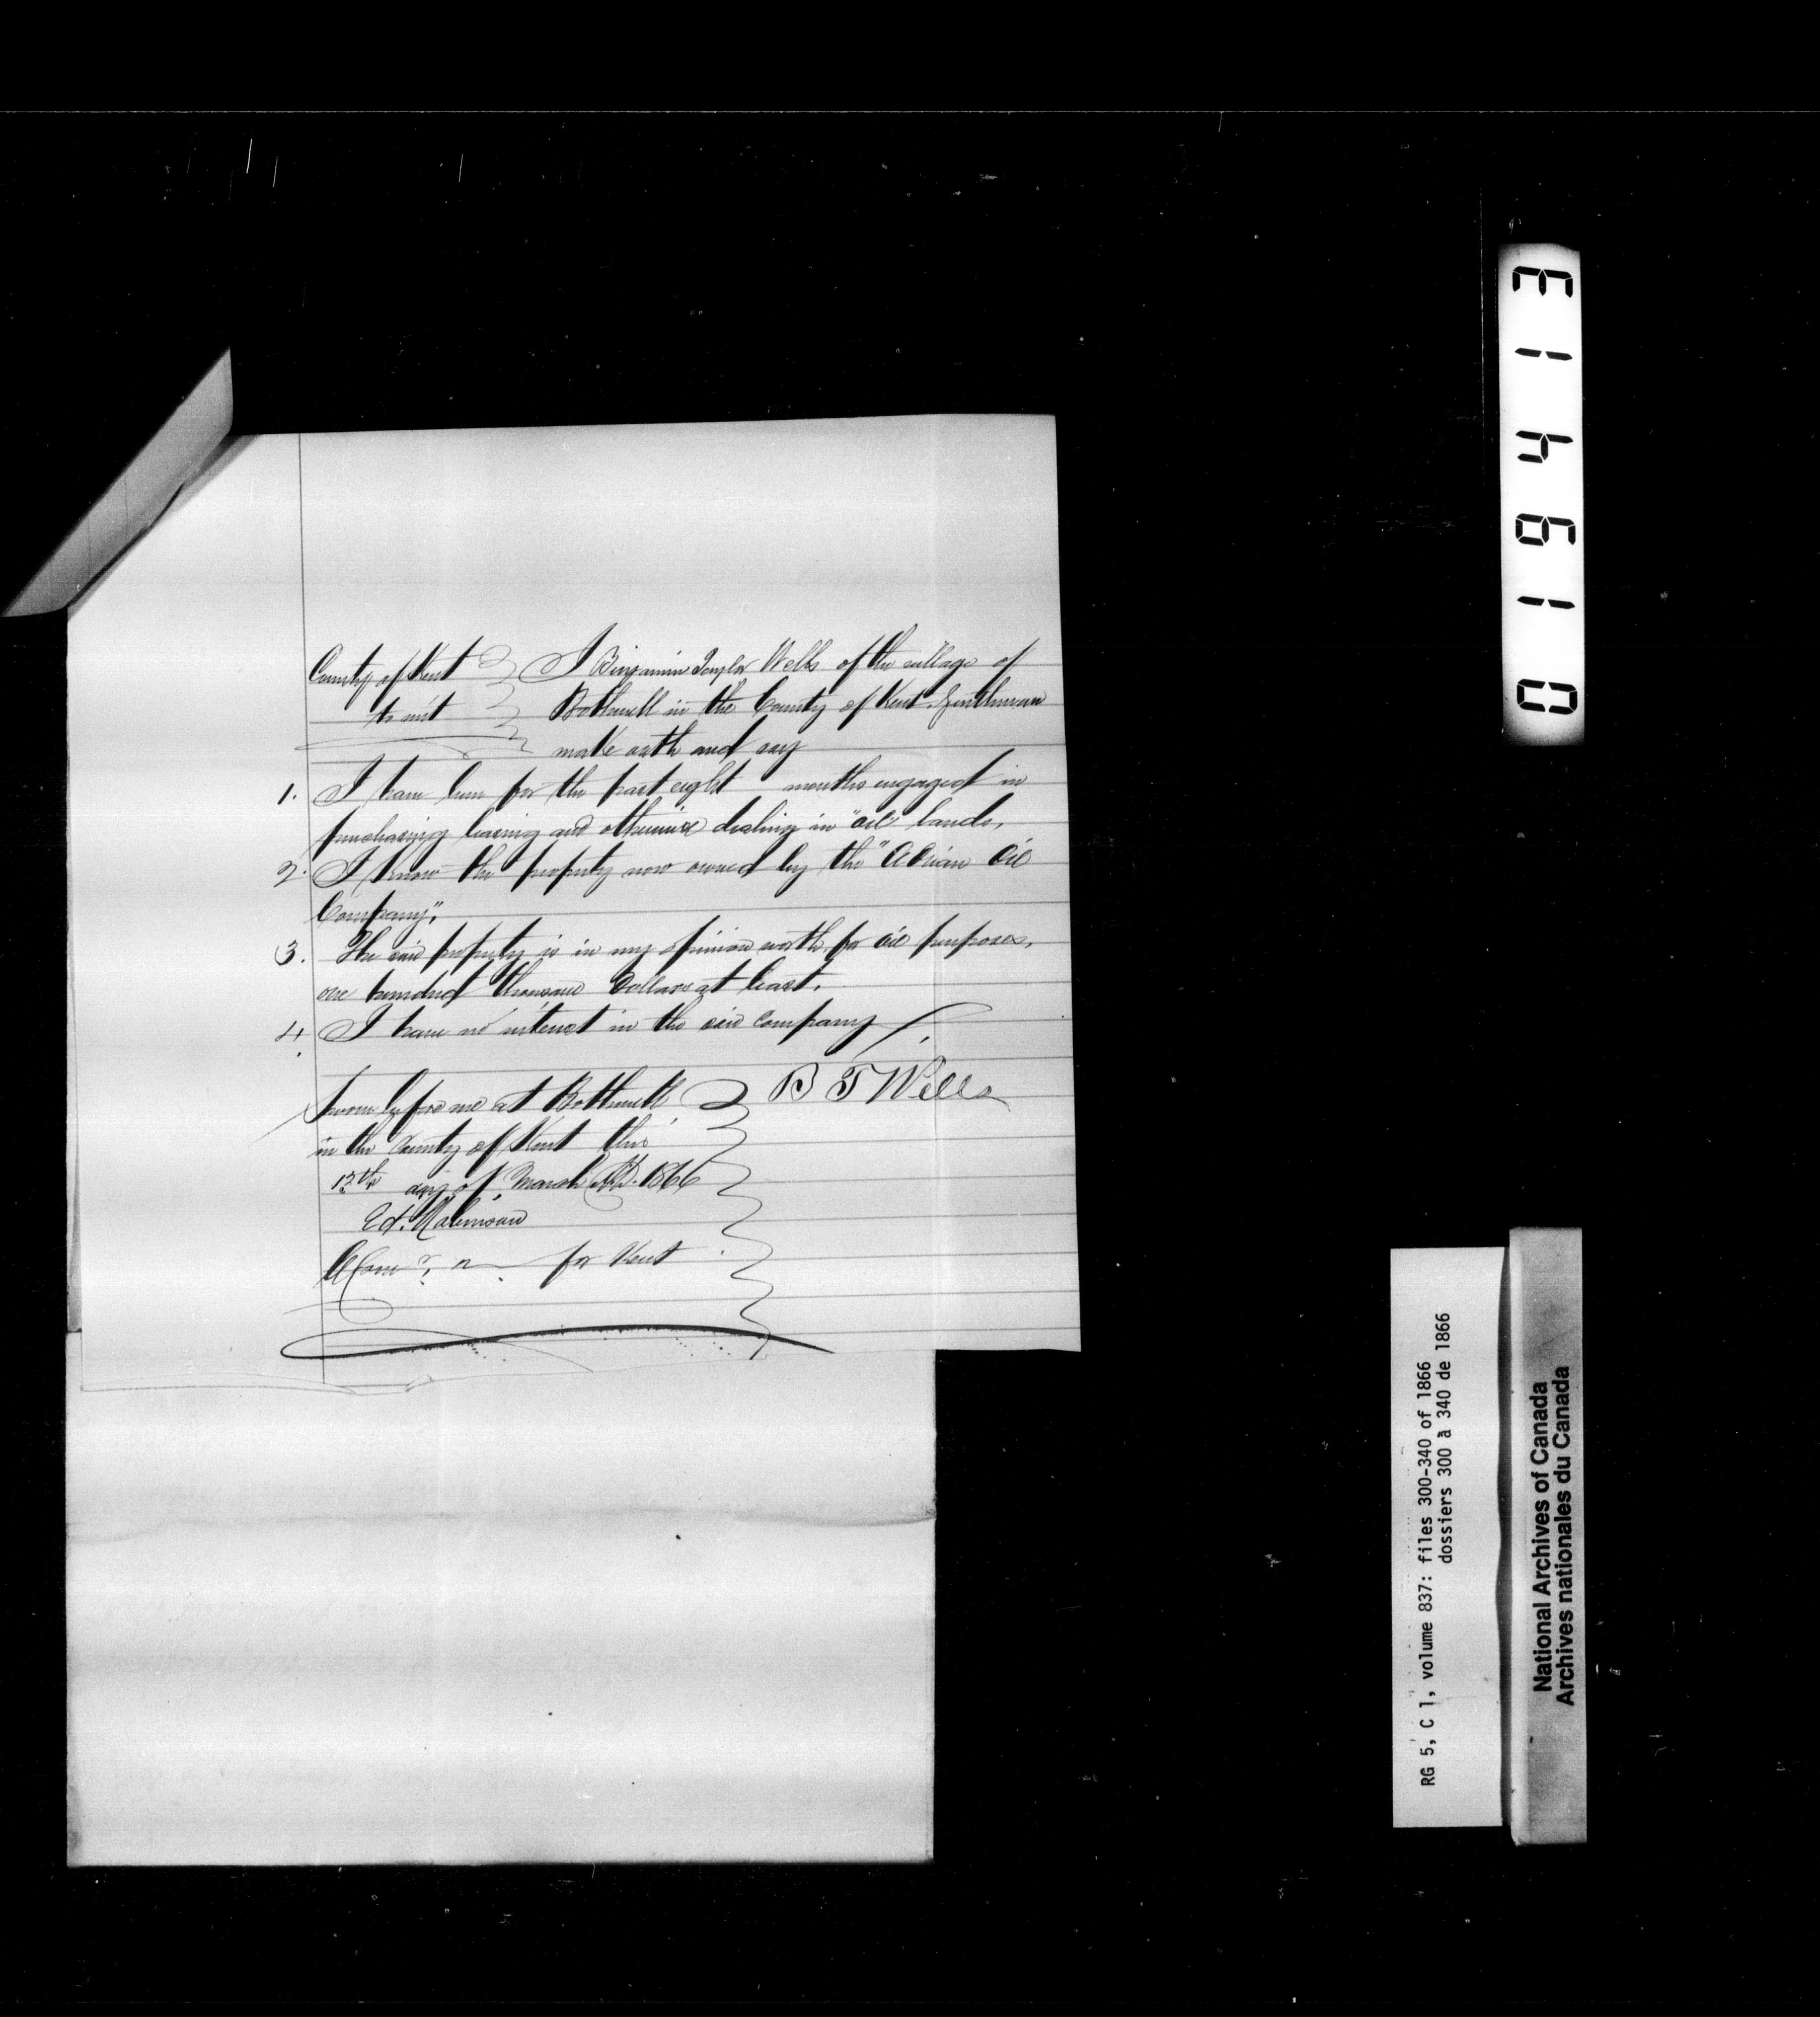 County of Kent I Benjamin Taylor Wells of the village of
to wit Bothwell in the County of Kent Gentleman
make oath and say
1. I have been for the past eight months engaged in
purchasing leasing and otherwise dealing in "oil" lands,
2. I know the property now owned by the "Adrian Oil
Company",
3. The said property is in my opinion worth, for oil purposes,
one hundred thousand Dollars at least.
4. I have no interest in the said Company
Sworn before me at Bothwell B T Wells
in the County of Kent this
13th day of March A.D. 1866
Ed. Robinson
A Comr, for Kent
RG 5, C 1, volume 837: files 300-340 of 1866
dossiers 300 à 340 de 1866
National Archives of Canada
Archives nationales du Canada
019413